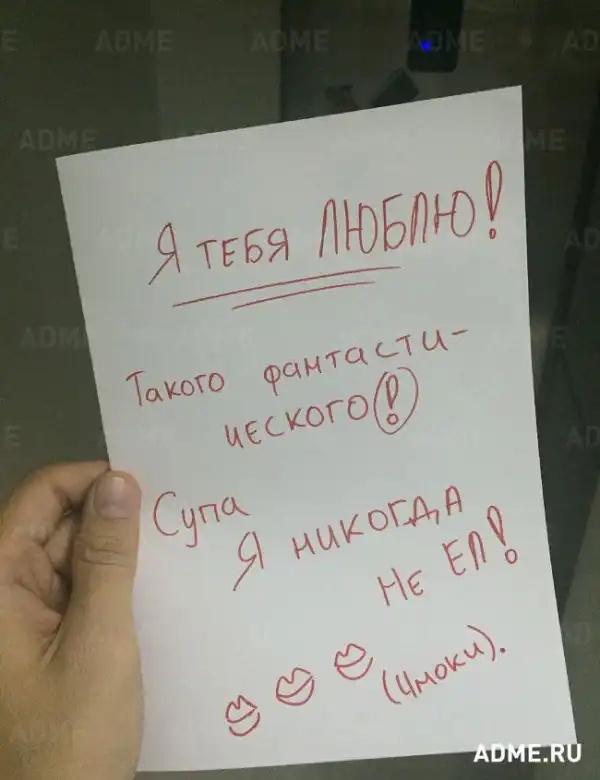 Я ТЕБЯ ЛЮБЛЮ!
Такого фантасти-
ческого!
Супа
Я никогда
Не ел!
(чмоки).
ADME.RU